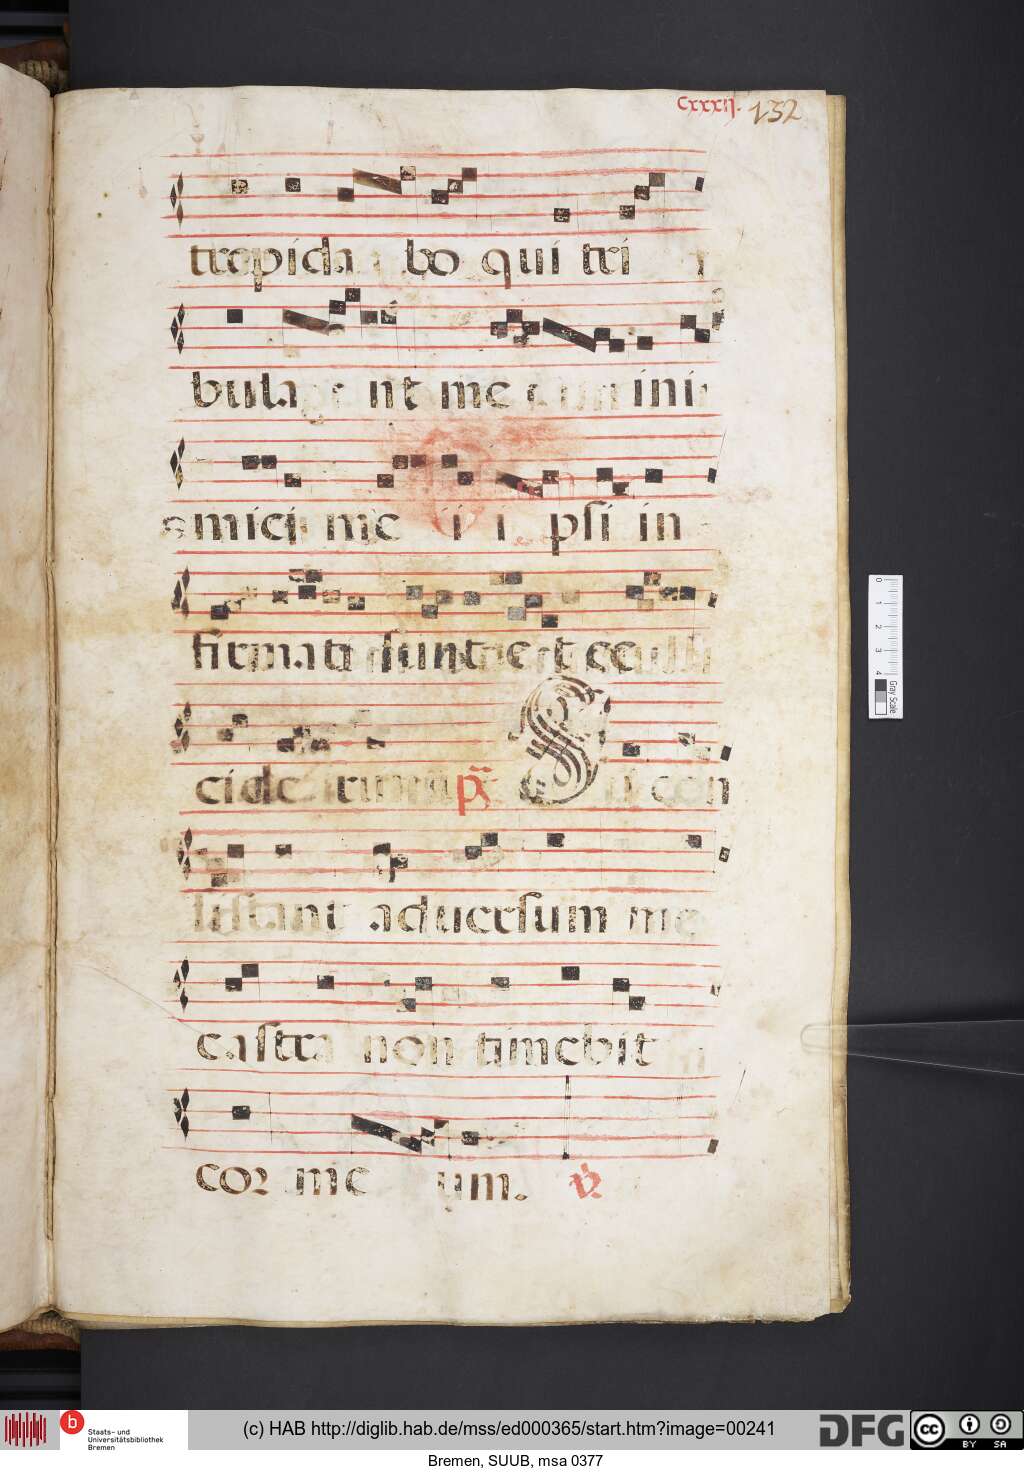 cxxxii. 132
trepida bo qui tri
bula nt me inimi
amici me i ipsi in
firmati sunt et ceci
ciderunt ps Si con
sistant aduersum me
castra non timebit
cor me um. v
0 1 2 3 4 Gray Scale
b Staats- und Universitätsbibliothek Bremen
(c) HAB http://diglib.hab.de/mss/ed000365/start.htm?image=00241
DFG cc BY SA
Bremen, SUUB, msa 0377